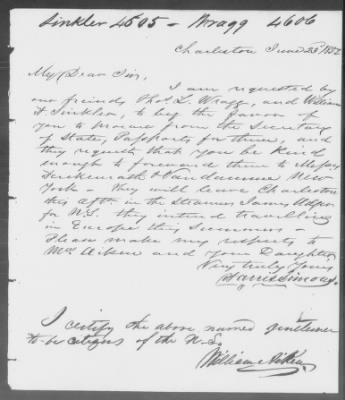 Sinkler 4605 - Wragg 4606
Charleston June 23 1852
My Dear Sir,
I am requested by
our friends Thos. L. Wragg, and William
H. Sinkler, to beg the favor of
you to procure from the Secretary
of State, Passports for them, and
they request that you be kind
enough to forward them to Messrs
New
York - They will leave Charleston
this aftn in the Steamer James Adger
for N.Y. they intend travelling
in Europe this Summer -
Please make my respects to
Mrs Aiken and your Daughter
Very truly Yours
Harris Simons
I certify the above named gentlemen
to be citizens of the U.S.
William Aiken